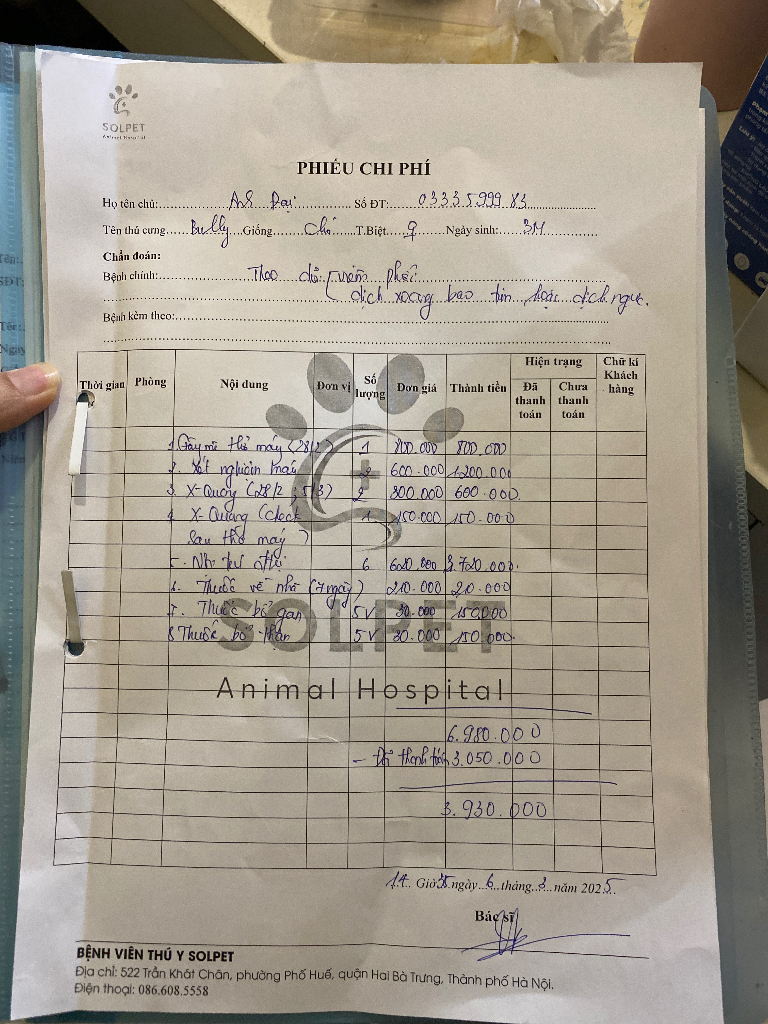 SOLPET
Animal Hospital
PHIẾU CHI PHÍ
Họ tên chủ: Anh Đại Số ĐT: 0333599983
Tên thú cưng: Bully Giống Chó T.Biệt ♀ Ngày sinh: 3M
Chẩn đoán:
Bệnh chính: Theo dõi viêm phổi
dịch xoang bao tim hoặc dịch ngực.
Bệnh kèm theo:
Thời gian Phòng Nội dung Đơn vị Số lượng Đơn giá Thành tiền Hiện trạng Đã thanh toán Chưa thanh toán Chữ kí Khách hàng
1. Gây mê thở máy (28/2) 1 800.000 800.000
2. Xét nghiệm máu 2 600.000 1.200.000
3. X-Quang (28/2, 5/3) 2 300.000 600.000
4. X-Quang (check 1 150.000 150.000
sau thở máy)
5. Nội trú 6 620.000 3.720.000
6. Thuốc về nhà (7 ngày) 210.000 210.000
7. Thuốc bổ gan 5V 30.000 150.000
8 Thuốc bổ thận 5V 30.000 150.000
SOLPET
Animal Hospital
6.980.000
- Đã thanh toán 3.050.000
3.930.000
14 Giờ 35 ngày 6 tháng 3 năm 2025
Bác sĩ
BỆNH VIÊN THÚ Y SOLPET
Địa chỉ: 522 Trần Khát Chân, phường Phố Huế, quận Hai Bà Trưng, Thành phố Hà Nội.
Điện thoại: 086.608.5558